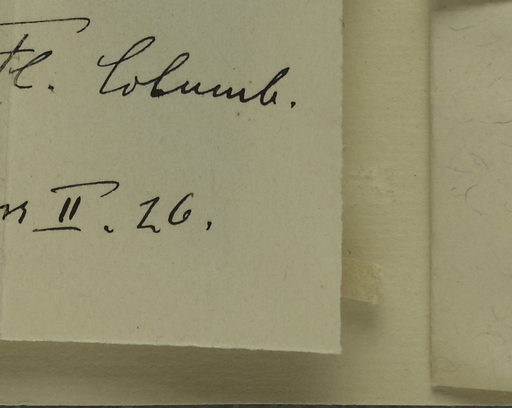 Fl. Columb.
II. 26.